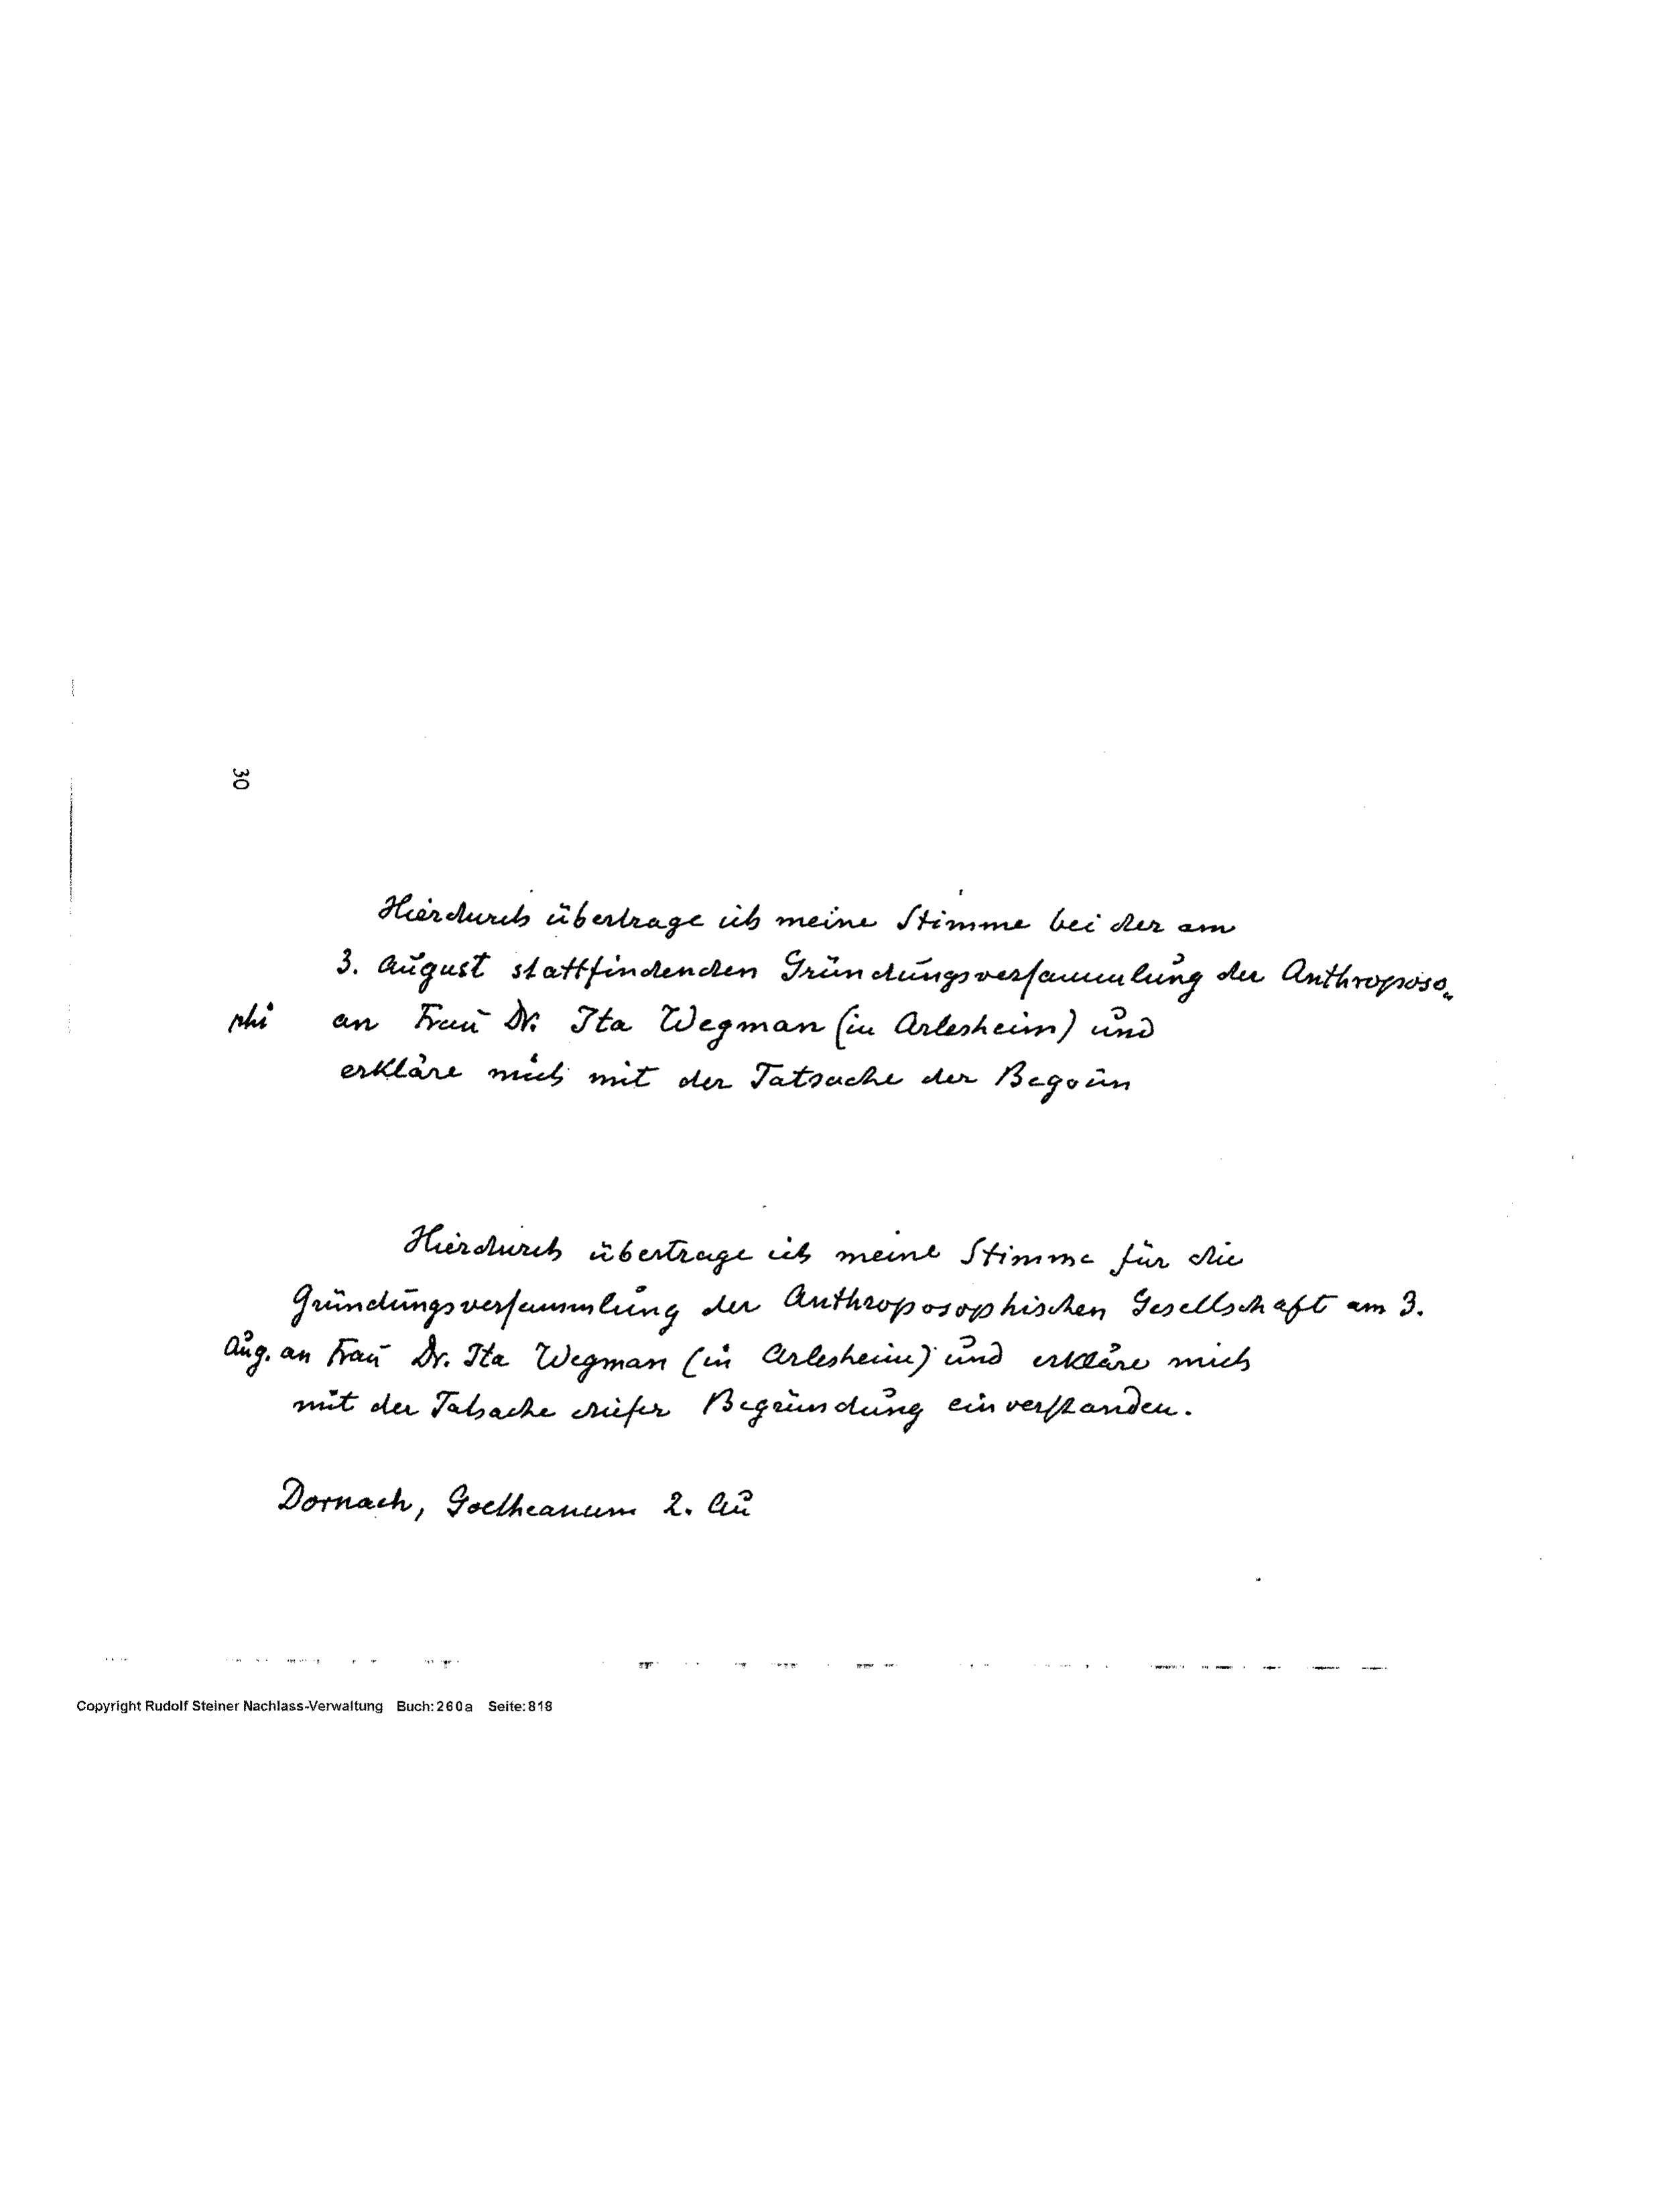 30
Hierdurch übertrage ich meine Stimme bei der am
3. August stattfindenden Gründungsversammlung der Anthroposo-
phi an Frau Dr. Ita Wegman (in Arlesheim) und
erkläre mich mit der Tatsache der Begrün
Hierdurch übertrage ich meine Stimme für die
Gründungsversammlung der Anthroposophischen Gesellschaft am 3.
Aug. an Frau Dr. Ita Wegman (in Arlesheim) und erkläre mich
mit der Tatsache dieser Begründung einverstanden.
Dornach, Goetheanum 2. Au
Copyright Rudolf Steiner Nachlass-Verwaltung Buch:260a Seite:818